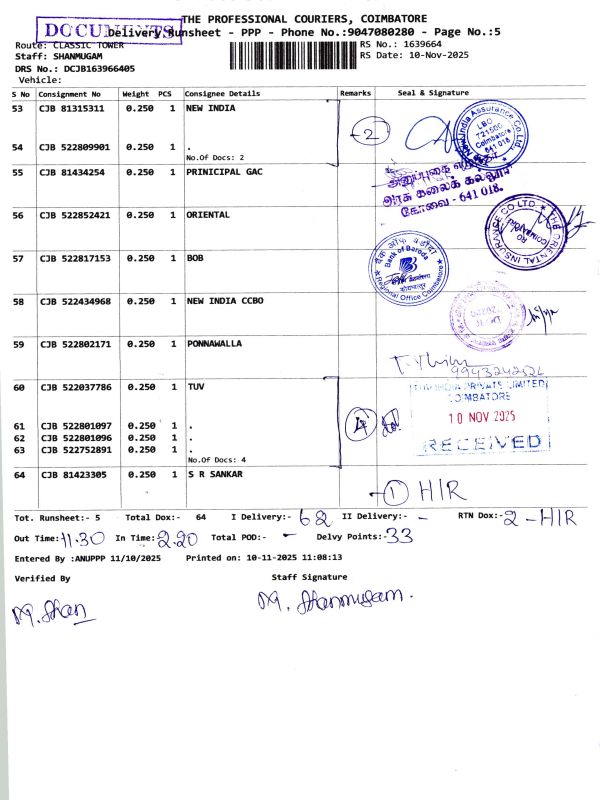 THE PROFESSIONAL COURIERS, COIMBATORE
DOCUMENTS
Delivery Runsheet - PPP - Phone No.:9047080280 - Page No.:5
Route: CLASSIC TOWER
RS No.: 1639664
Staff: SHANMUGAM
RS Date: 10-Nov-2025
DRS No.: DCJB163966405
Vehicle:
S No Consignment No Weight PCS Consignee Details Remarks Seal & Signature
53 CJB 81315311 0.250 1 NEW INDIA
2
New India Assurance Co. Ltd.
LBO
721500
Coimbatore
641 018
54 CJB 522809901 0.250 1 .
No.Of Docs: 2
55 CJB 81434254 0.250 1 PRINICIPAL GAC
அரசு கலைக் கல்லூரி
கோவை - 641 018.
56 CJB 522852421 0.250 1 ORIENTAL
THE ORIENTAL INSURANCE CO LTD
RO
57 CJB 522817153 0.250 1 BOB
बैंक ऑफ़ बड़ौदा
Bank of Baroda
Regional Office Coimbatore
58 CJB 522434968 0.250 1 NEW INDIA CCBO
59 CJB 522802171 0.250 1 PONNAWALLA
60 CJB 522037786 0.250 1 TUV
TUV INDIA PRIVATE LIMITED
COIMBATORE
10 NOV 2025
RECEIVED
61 CJB 522801097 0.250 1 .
4
62 CJB 522801096 0.250 1 .
63 CJB 522752891 0.250 1 .
No.Of Docs: 4
64 CJB 81423305 0.250 1 S R SANKAR
1 HIR
Tot. Runsheet:- 5 Total Dox:- 64 I Delivery:- 62 II Delivery:- - RTN Dox:- 2 - HIR
Out Time: 11.30 In Time: 2.20 Total POD:- - Delvy Points:- 33
Entered By :ANUPPP 11/10/2025 Printed on: 10-11-2025 11:08:13
Verified By Staff Signature
M. Shan M. Shanmugam.